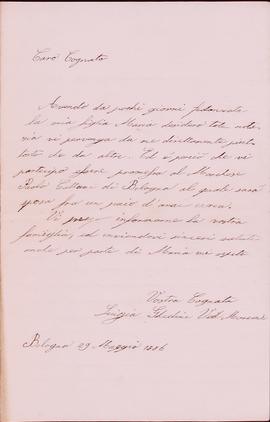 Caro Cognato
Avendo da pochi giorni fidanzata
la mia figlia Maria desidero tale noti-
zia vi pervenga da me direttamente piut-
tosto che da altri. Ed è perciò che vi
partecipo essere promessa al Marchese
Paolo di Bologna al quale sarà
sposa fra un paio d'mesi circa.
Vi prego informarne la vostra
famiglia, ed inviandovi sinceri saluti
anche per parte di Maria me
Vostra Cognata
Luigia Ved.
Bologna 29 Maggio 1886